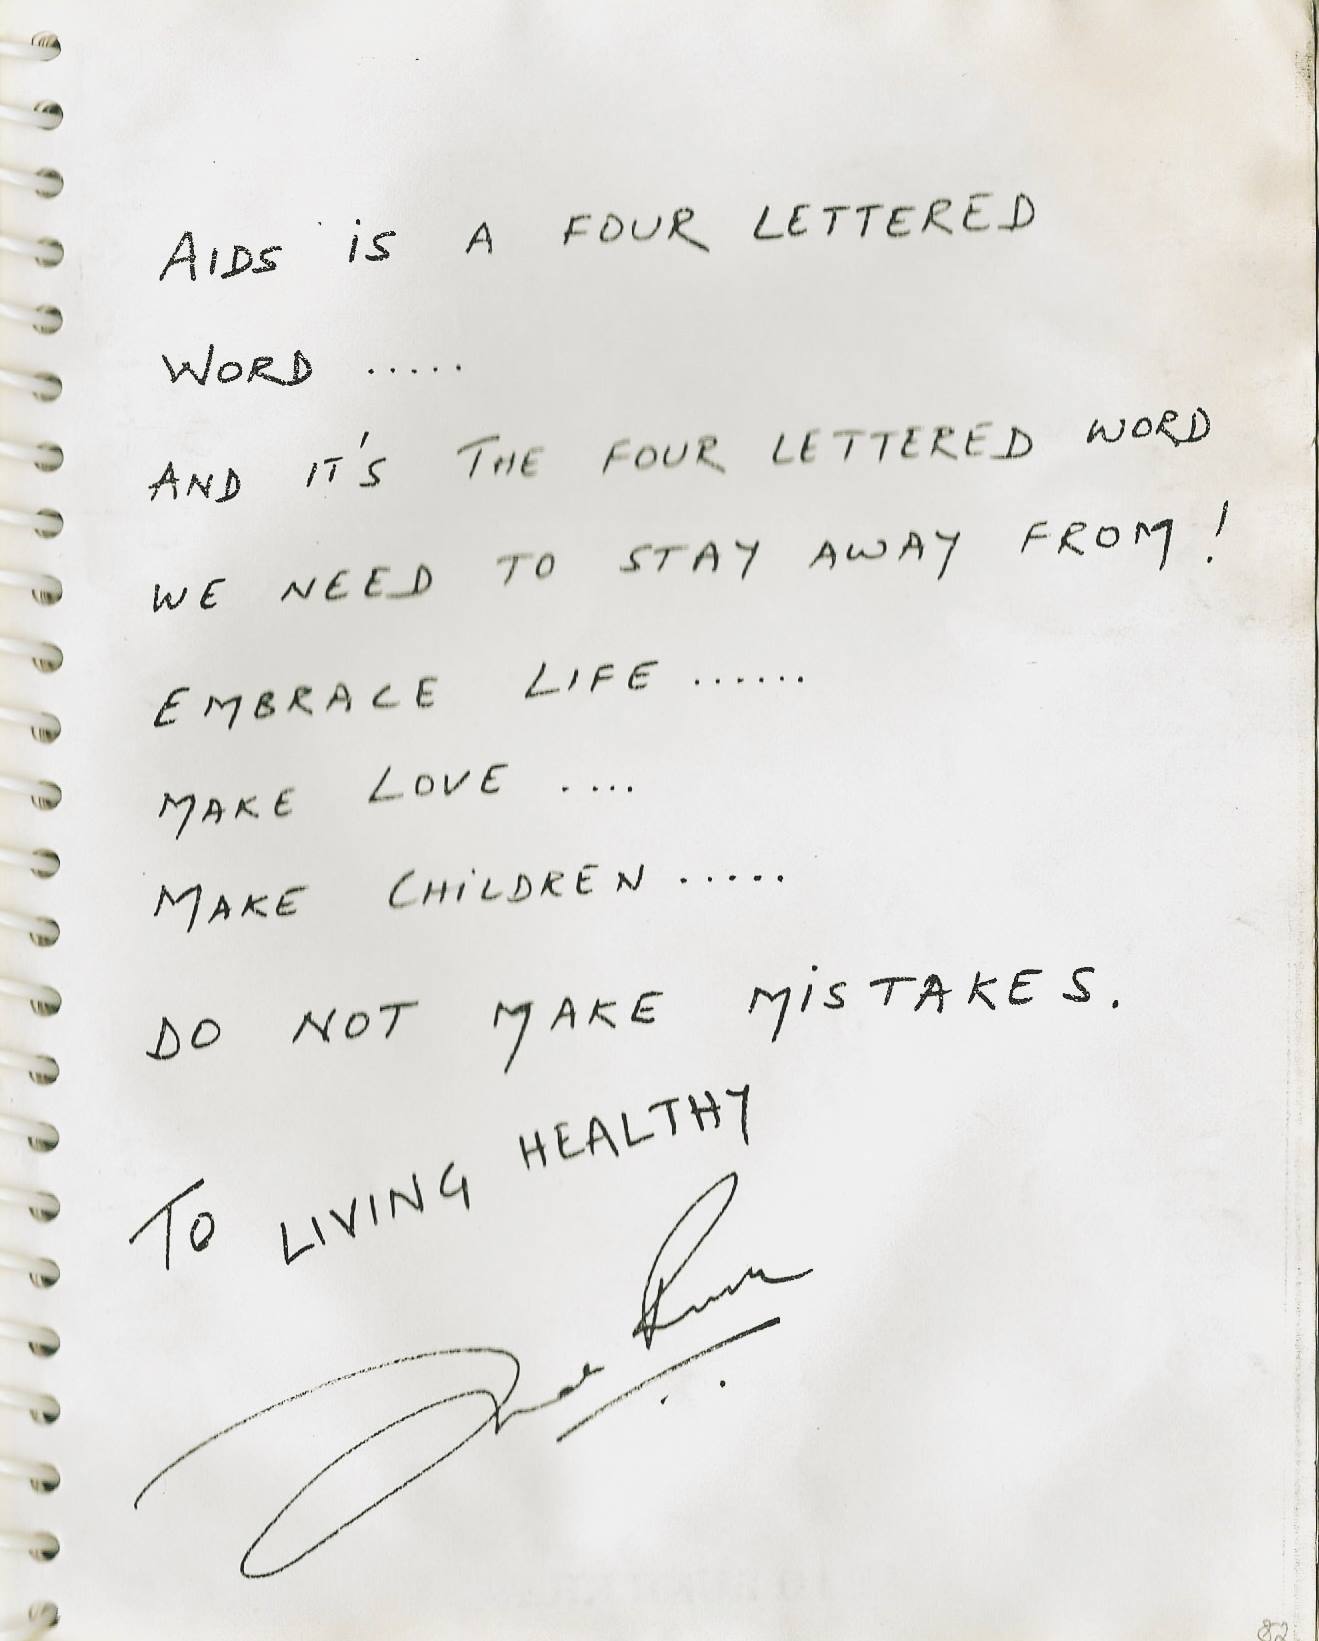 AIDS iS A FOUR LETTERED
WORD .....
AND IT'S THE FOUR LETTERED WORD
WE NEED TO STAY AWAY FROM!
EMBRACE LIFE ......
MAKE LOVE ....
MAKE CHiLDREN .....
DO NOT MAKE MiSTAKES.
TO LIVING HEALTHY
82